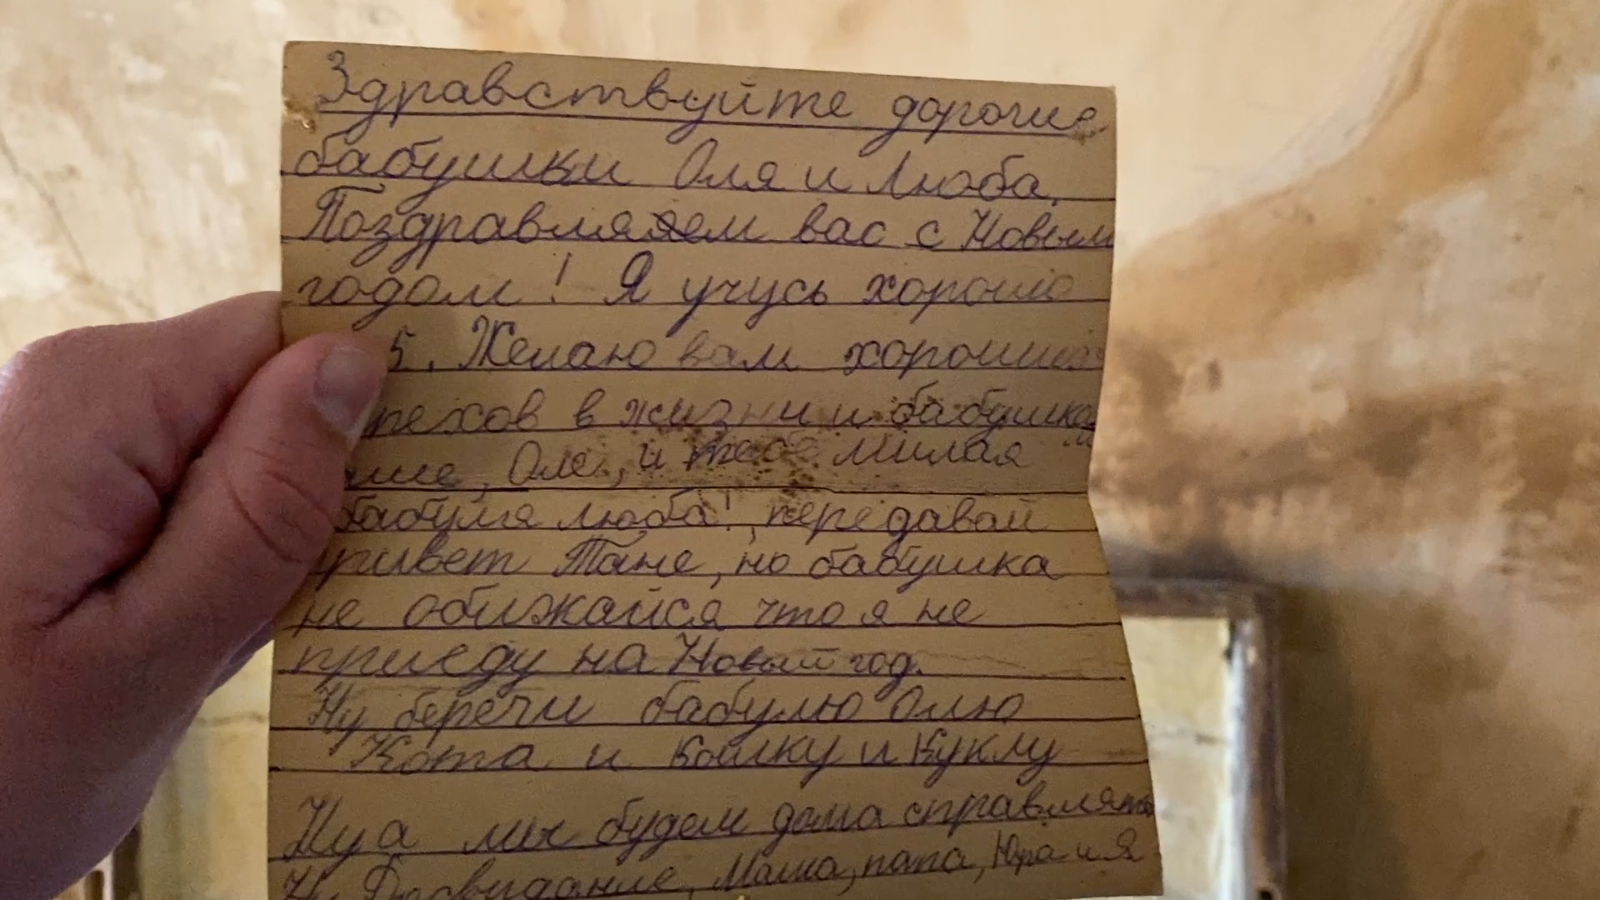 Здравствуйте дорогие
бабушки Оля и Люба.
Поздравляем вас с Новым
годом! Я учусь хорошо
5. Желаю вам хороших
пехов в жизни и бабушка
Оле, и тебе милая
бабуля люба!, передавай
привет Тане, но бабушка
не обижайся что я не
приеду на Новый год.
Ну беречи бабулю Олю
Кота и Кошку и Куклу
Ну а мы будем дома справлять
Ну Досвидание, Мама, папа, Юра и Я